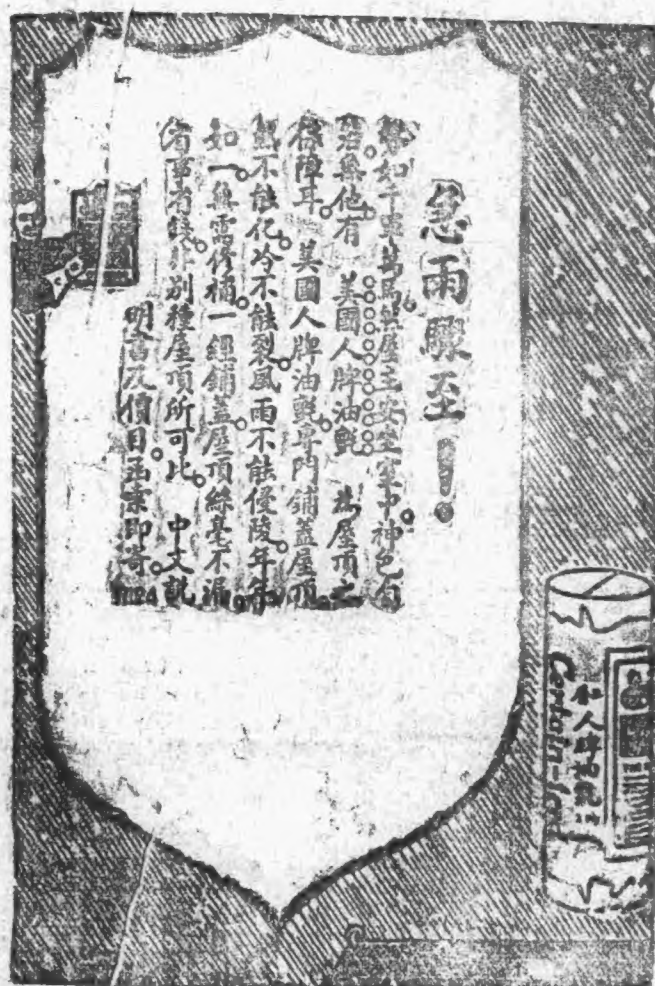 急雨驟至！
勢如千軍萬馬然屋主安坐室中神色自
若無他有 美國人牌油氈 為屋頂之
保障耳 美國人牌油氈專門鋪蓋屋頂
熱不能化冷不能裂風雨不能侵陵年年
如一無需修補一經鋪蓋屋頂絲毫不漏
省事省錢非別種屋頂所可比 中文說
明書及價目函索即寄
1124
人牌油氈
Certain-teed